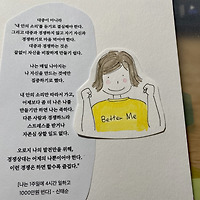 대중이 아니라
'내 안의 소리'를 듣기로 결심해야 한다.
그리고 대중과 경쟁하지 않고 자기 자신과
경쟁하기로 마음 먹어야 한다.
대중과 경쟁하는 것은
끝없이 자신을 지렁이에 만들기 쉽다.
나는 매일 나아지는
나 자신을 만드는 것에만
집중하기로 했다.
내 안의 소리만 따라서 가고,
어제보다 좀 더 나은 나를
만들기기만 하면 나는 족하다.
다른 사람과 경쟁하느라
스트레스를 받거나
자존심 상할 일도 없다.
오로지 나의 발전만을 위해,
경쟁상대는 어제의 나뿐이어야 한다.
이런 경쟁은 하면 할수록 즐겁다.
<나는 1주일에 4시간 일하고
1000만원 번다> - 신태순
Better Me